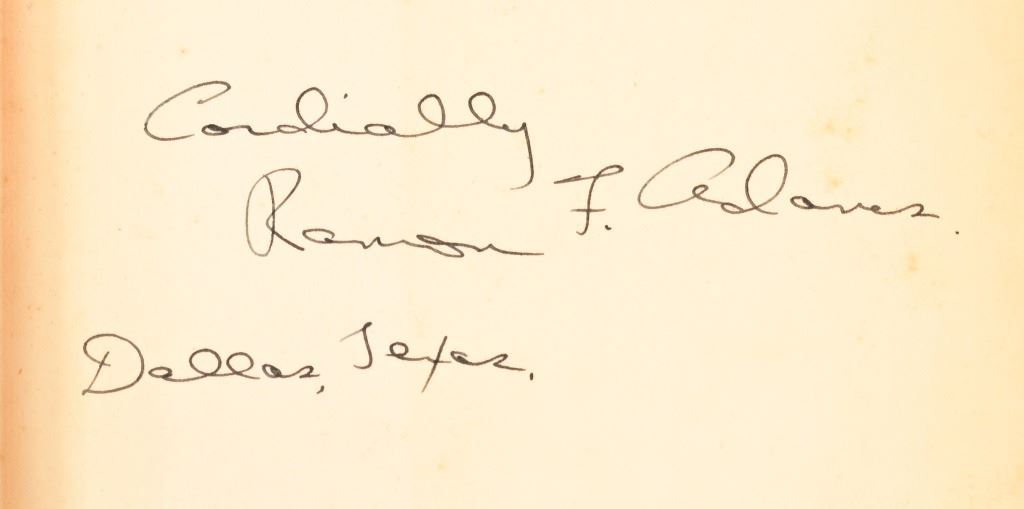 Cordially
Ramon F. Adams.
Dallas, Texas.